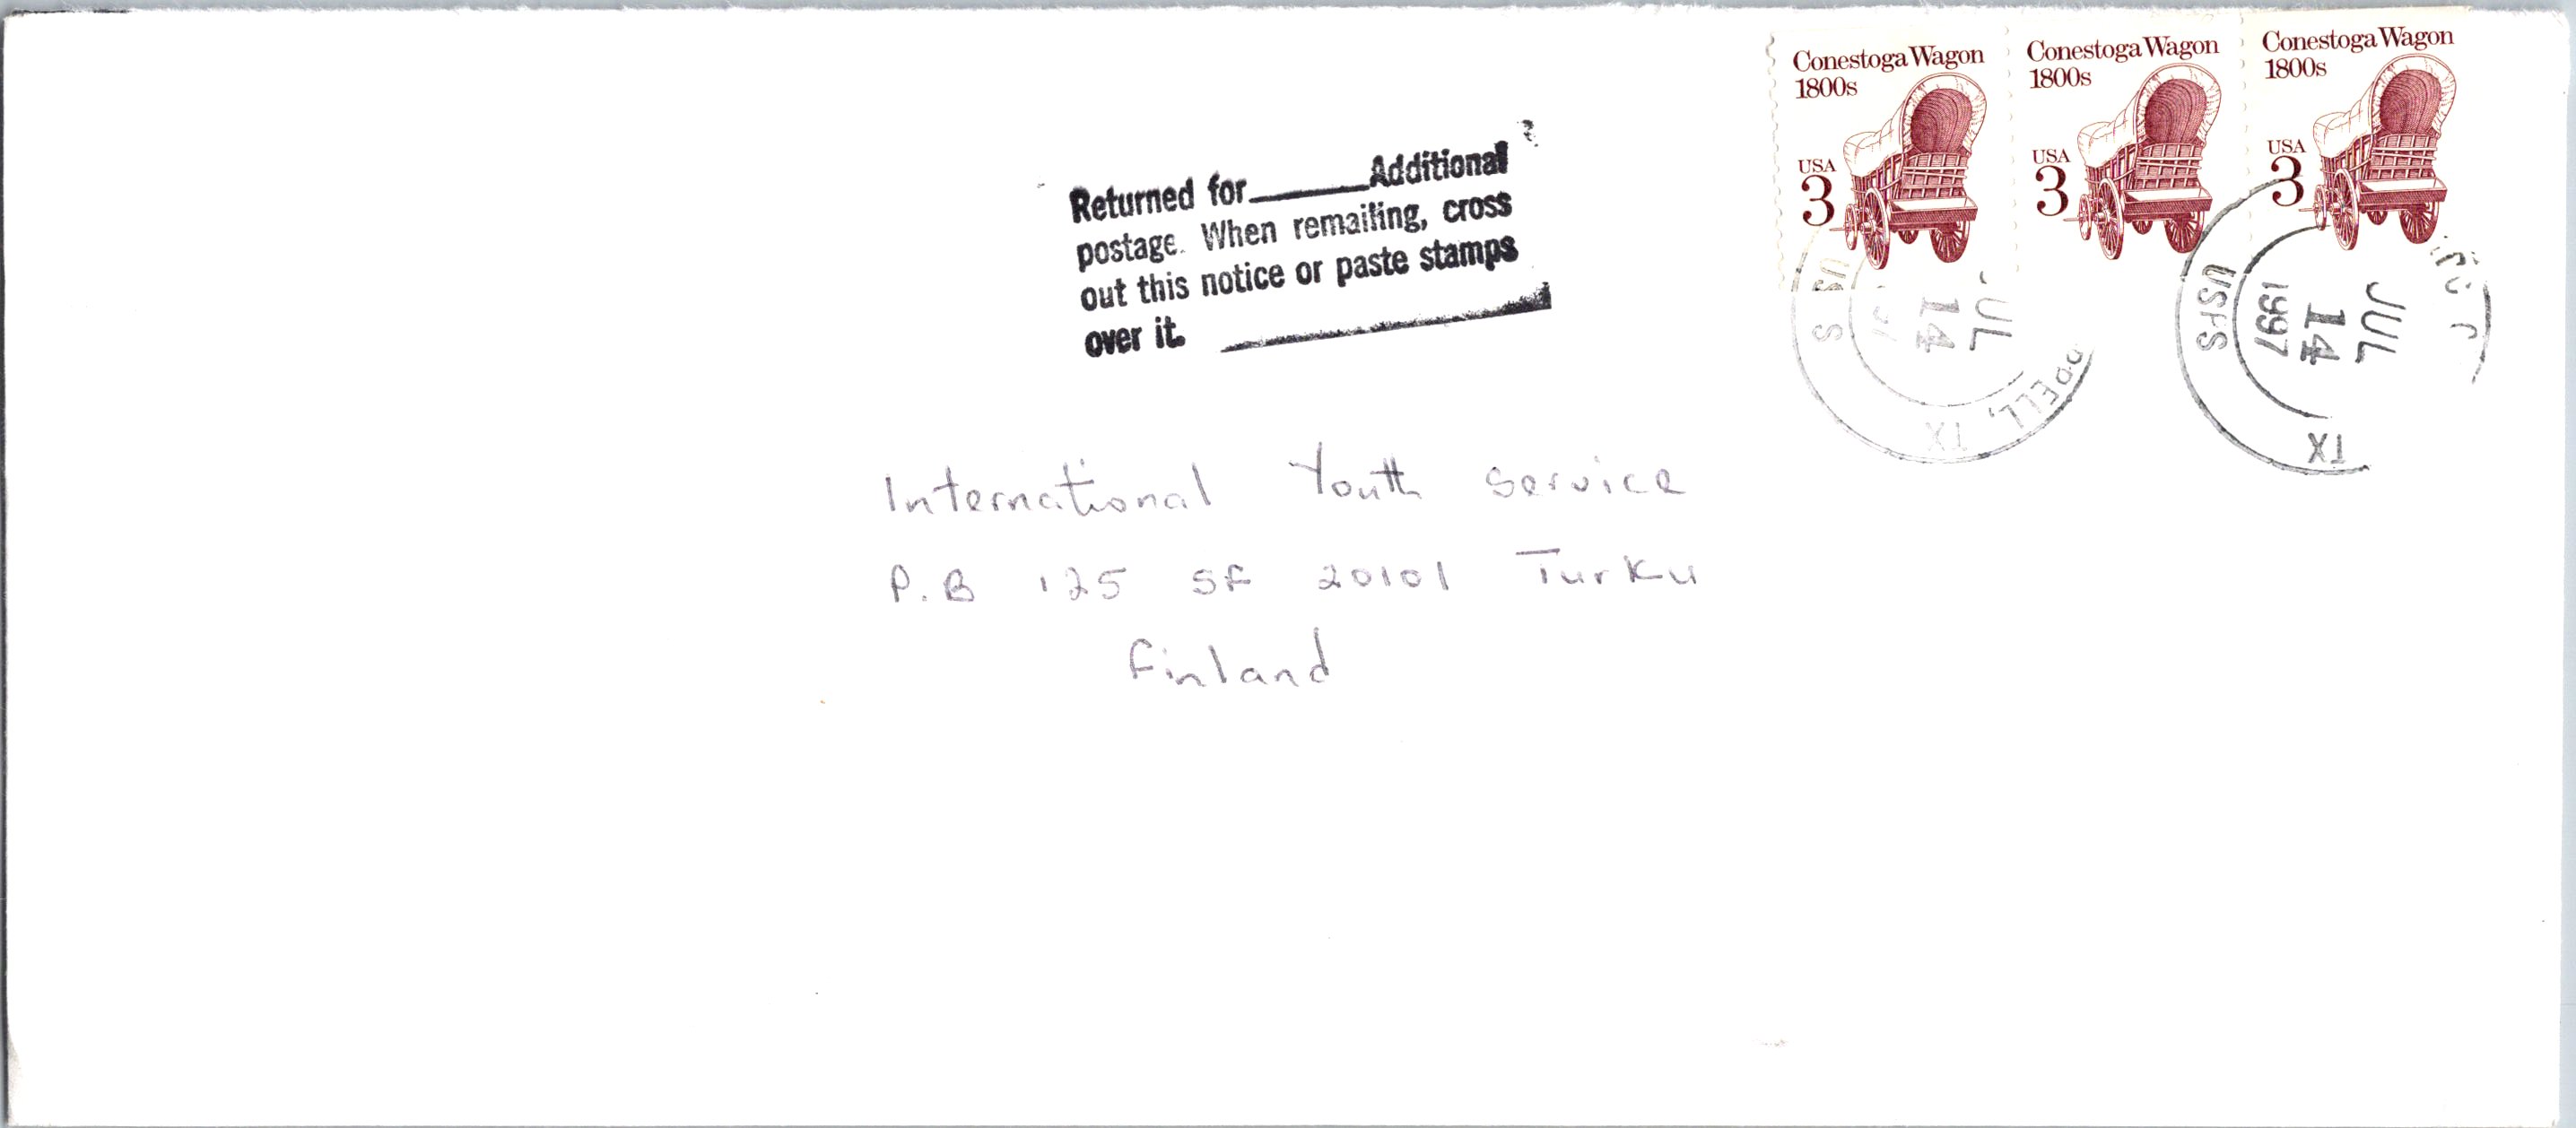 Conestoga Wagon
1800s
USA
3
Conestoga Wagon
1800s
USA
3
Conestoga Wagon
1800s
USA
3
Returned for______Additional
postage. When remailing, cross
out this notice or paste stamps
over it.
JUL
14
TX
USPS
JUL
14
1997
TX
International Youth Service
P.B 125 SF 20101 Turku
Finland